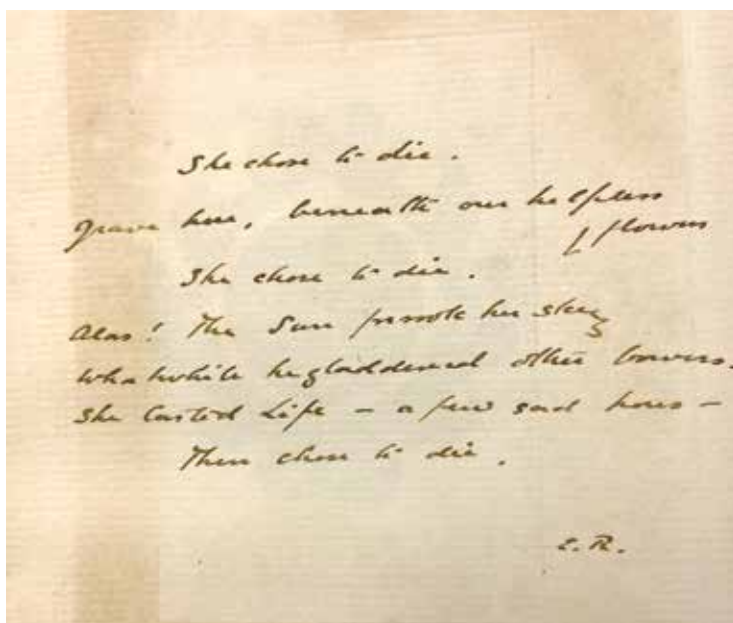 She chose to die.
Grave her, beneath our helpless
[flowers
She chose to die.
Alas! The Sun forsook her sky
Whatwhile he gladdened other bowers.
She tasted Life – a few sad hours –
Then chose to die.
E.R.